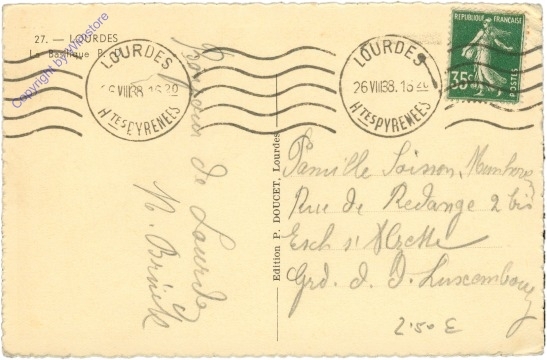 27. — LOURDES
La Basilique
Copyright by Winstore
LOURDES
16 VIII 38. 16 20
HTES PYRENEES
LOURDES
26 VIII 38. 16 20
HTES PYRENEES
REPUBLIQUE FRANÇAISE
35c
POSTES
de Lourdes
N.
Edition P. DOUCET, Lourdes
Famille
Rue de Redange 2 bis
Esch s/ Alzette
Grd. d. d. Luxembourg
2.50 £